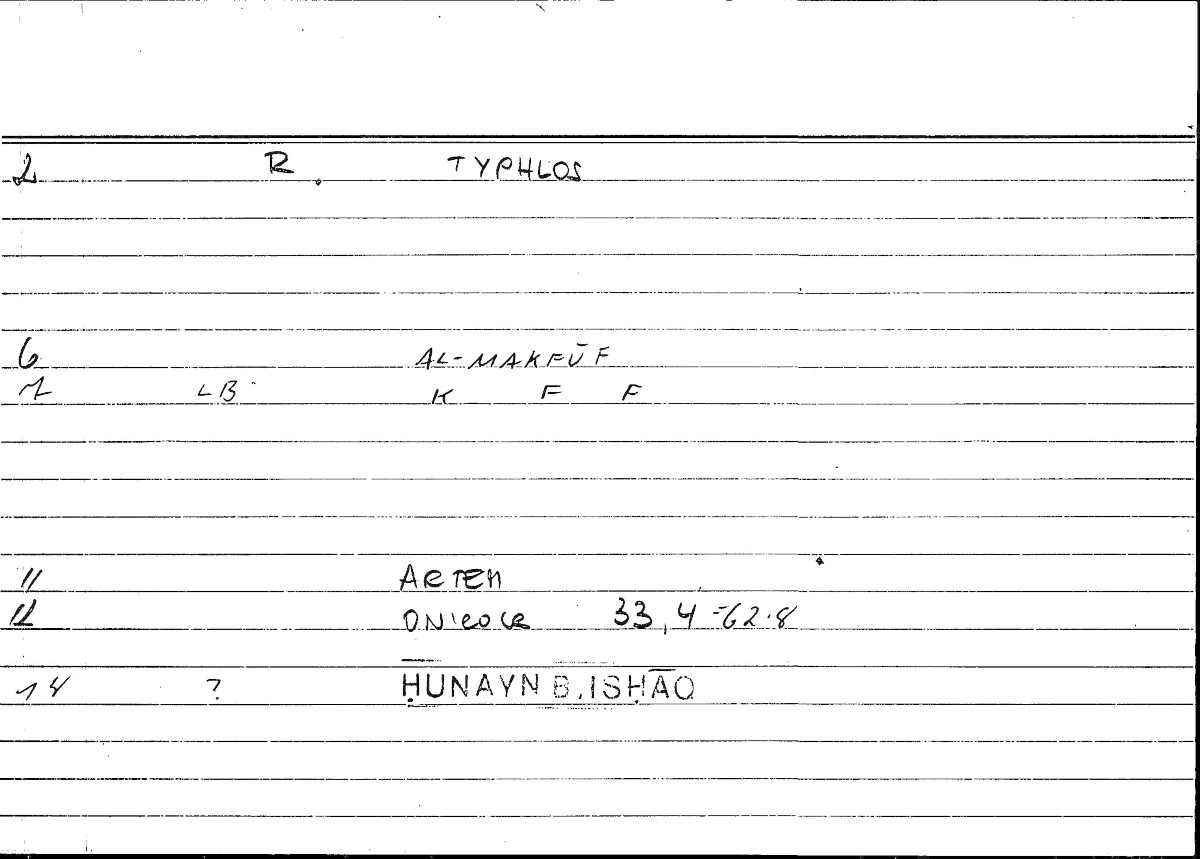 2 R. TYPHLOS
6 AL-MAKFŪF
7 LB K F F
11 ARTEM
12 ONIROCR 33,4-62.8
14 ? ḤUNAYN B. ISḤĀQ